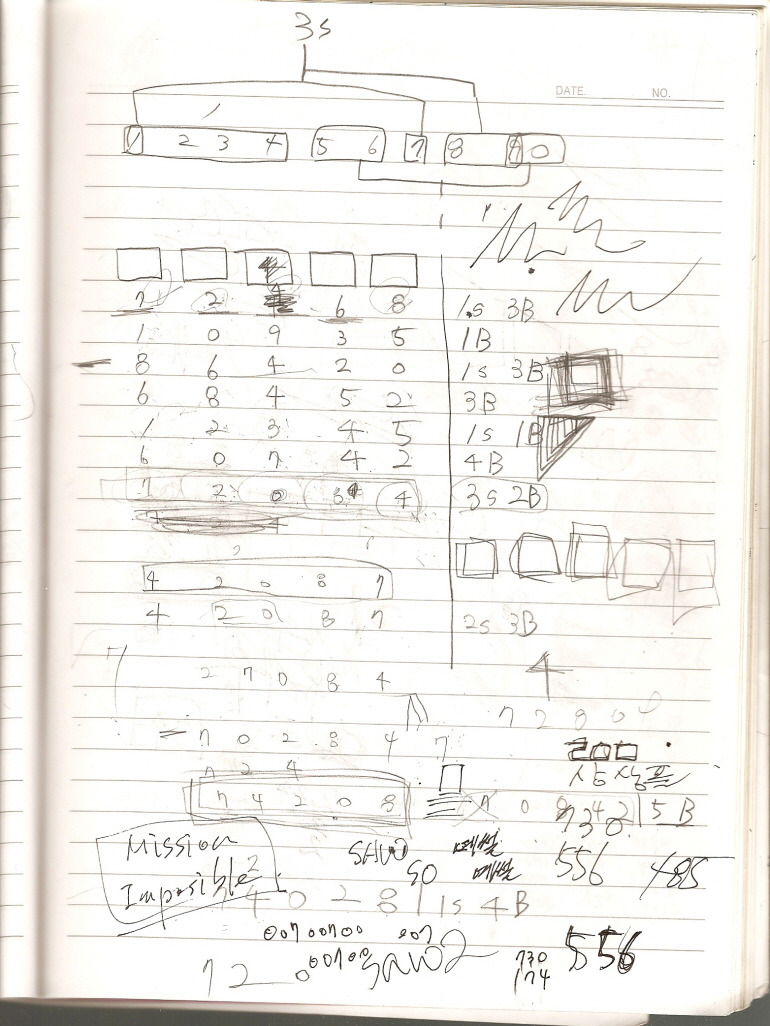 3s
DATE. NO.
1 2 3 4 5 6 7 8 9 0
7 2 4 6 8 1s 3B
1 0 9 3 5 1B
8 6 4 2 0 1s 3B
6 8 4 5 2 3B
1 2 3 4 5 1s 1B
6 0 7 4 2 4B
7 2 0 8 4 3s 2B
4 2 0 8 7
4 2 0 8 7 2s 3B
4
2 7 0 8 4
7 2 8 0
7 0 2 8 4 7
7 2 4
7 4 2 0 8
5B
730
Mission
Imposible2
SHUO
SO
556 485
7 4 0 2 8 1s 4B
00700700 007
7 2 00700
730
174
556